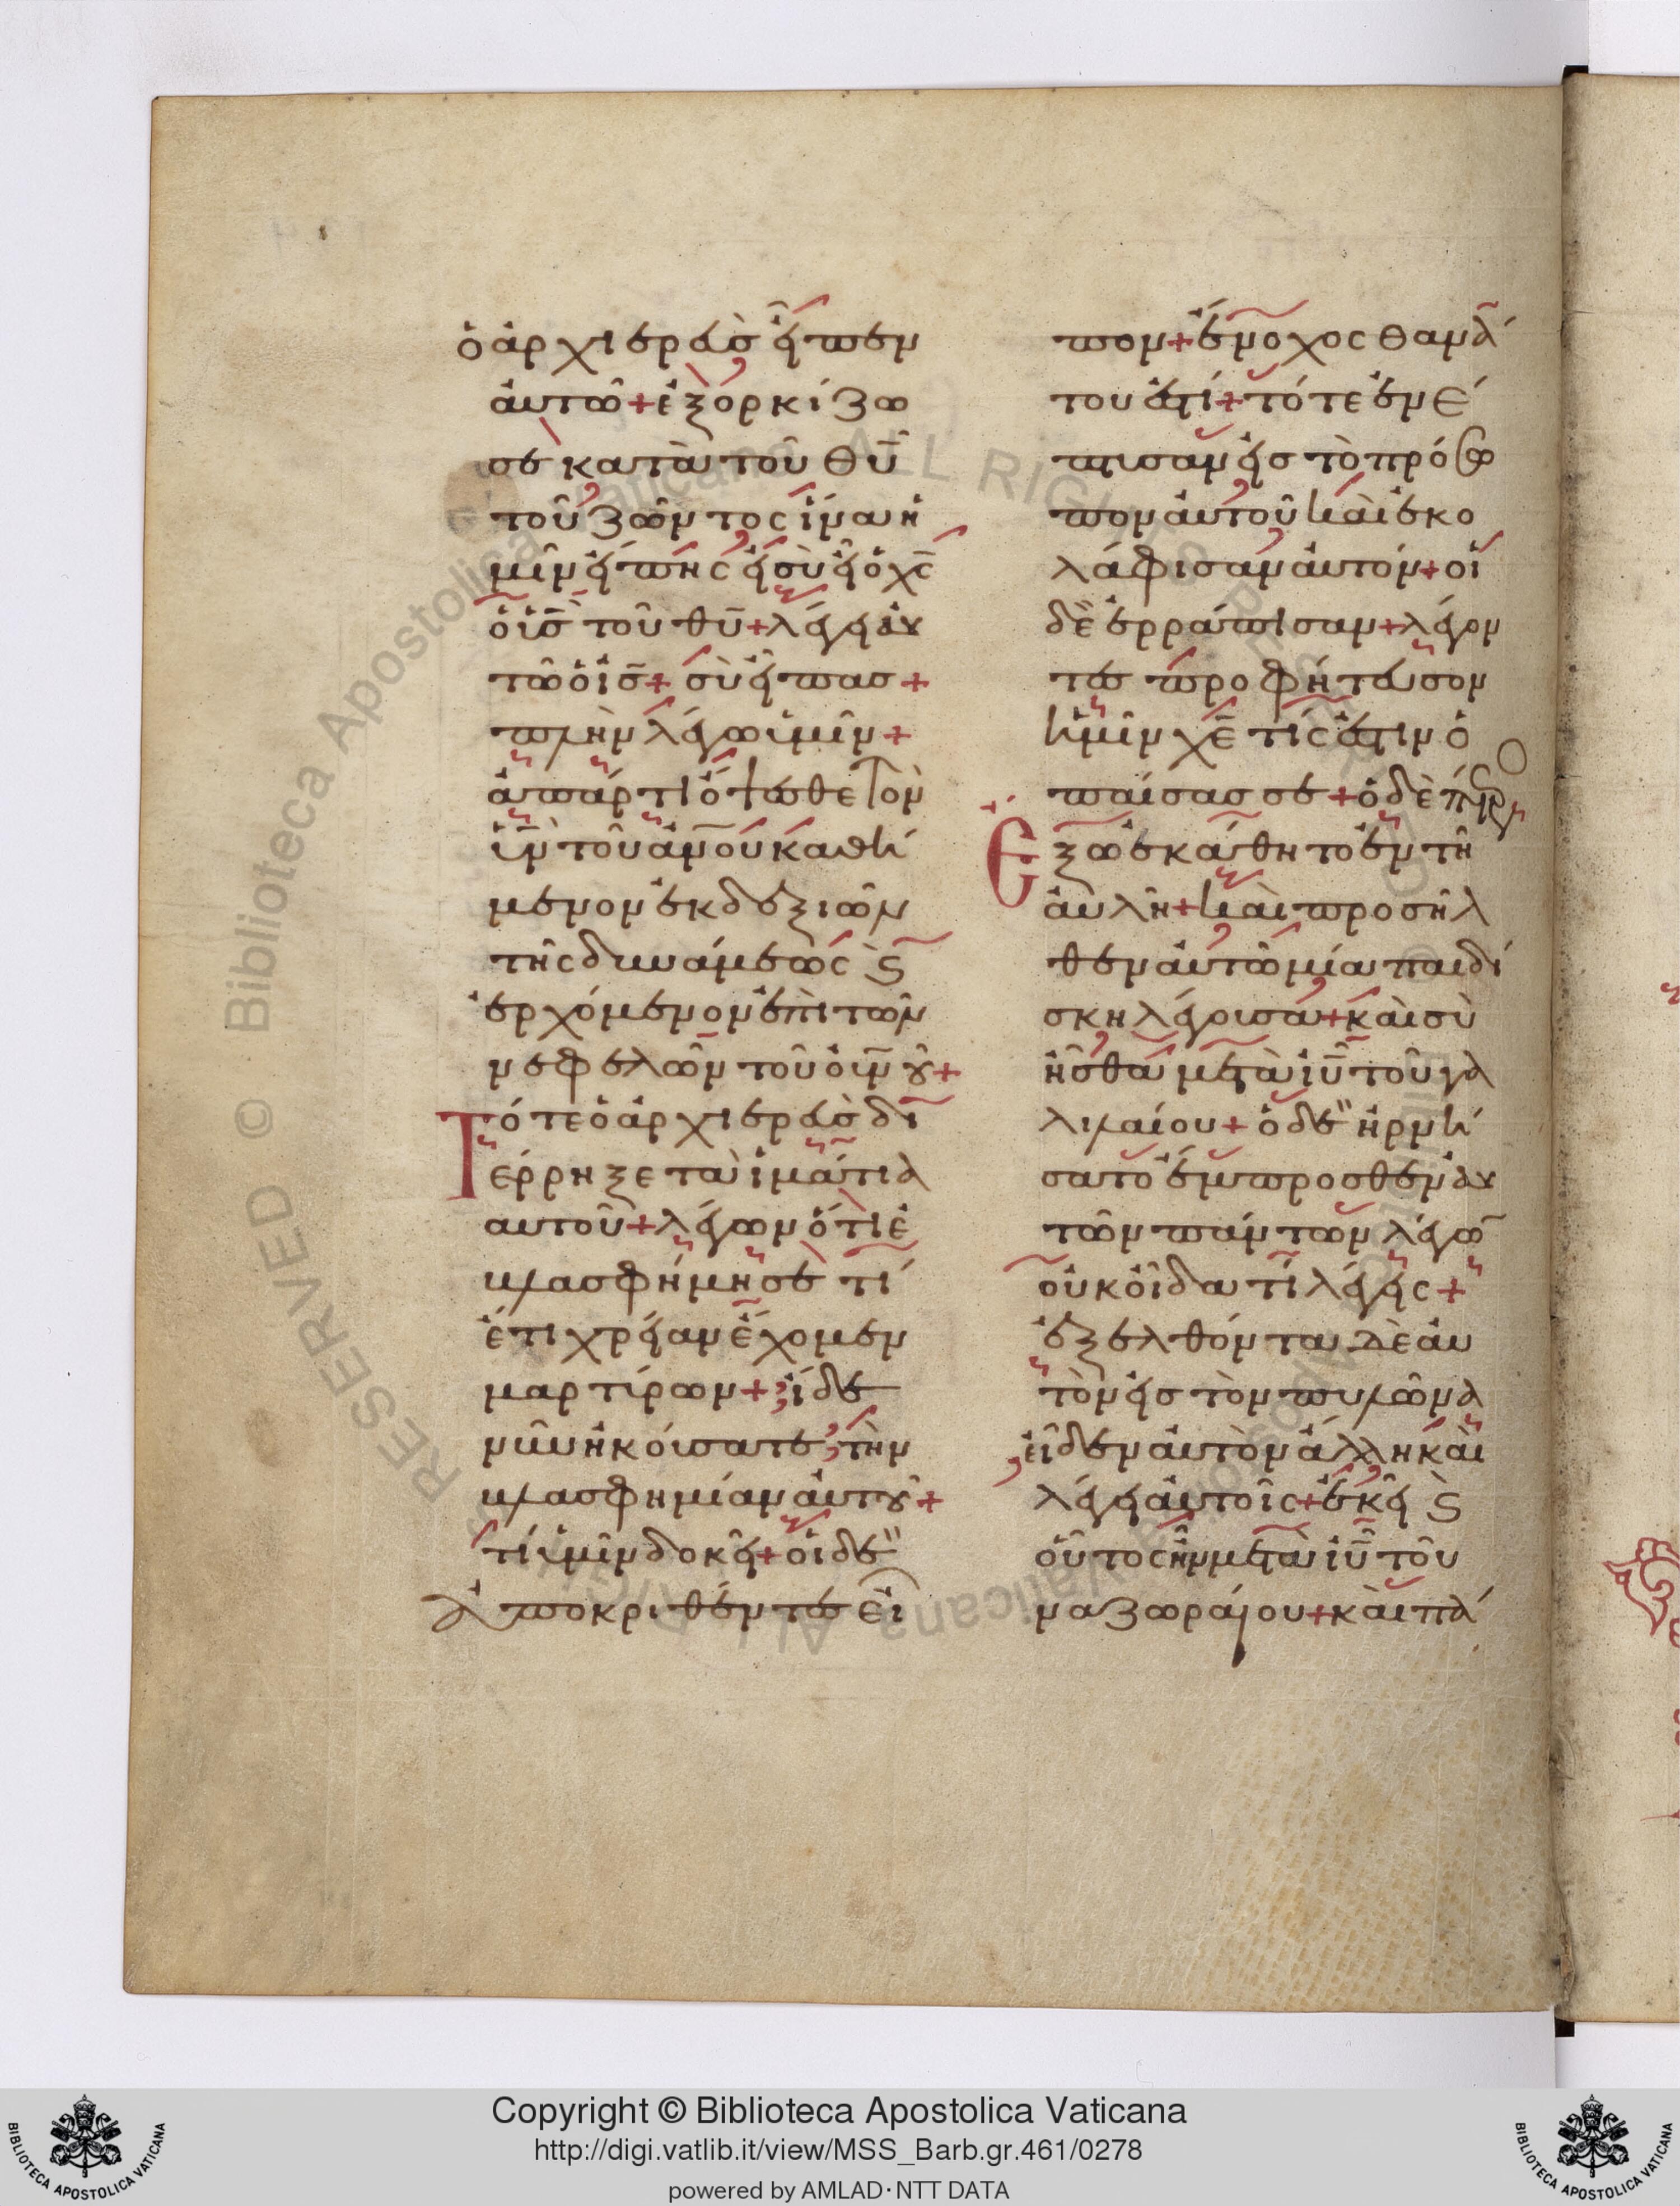 ὁ ἀρχιερεὺς εἶπεν
αὐτῶ + ἐξορκίζω
σε κατὰ τοῦ θ̅υ̅
τοῦ ζῶντος ἵνα ἡ
μῖν εἴπης εἰ σὺ εἶ ὁ χ̅ς̅
ὁ ὑ̅ς̅ τοῦ θ̅υ̅ + λέγει αυ
τῶ ὁ ι̅ς̅ + σὺ εἶπας +
πλὴν λέγω ὑμῖν +
ἀπάρτι ὄψεσθε τὸν
ὑ̅ν̅ τοῦ ἀ̅ν̅ο̅υ̅ καθή
μενον ἐκ δεξιῶν
τῆς δυνάμεως ϗ
ἐρχόμενον ἐπὶ τῶν
νεφελῶν τοῦ ο̅υ̅ν̅ου +
Τότε ὁ ἀρχιερεὺς δι
έρρηξε τὰ ἱμάτια
αυτοῦ + λέγων ὅτι ἐ
βλασφήμησε τί
ἔτι χρείαν ἔχομεν
μαρτύρων + ἴδε
νῦν ἠκούσατε τὴν
βλασφημίαν αὐτοῦ +
τί ὑμῖν δοκεῖ + οἱ δὲ
ἀποκριθέντες εἶ
πον + ἔνοχος θανά
του ἐστί + τότε ἐνέ
πτυσαν εἰς τὸ πρόσω
πον αὐτοῦ καὶ ἐκο
λάφισαν αὐτόν + οἱ
δὲ ἐρράπισαν + λέγον
τες προφήτευσον
ἡμῖν χ̅ε̅ τίς ἐστιν ὁ
παίσας σε + ὁ δὲ πέτρος
Ἔξω ἐκάθητο ἐν τῆ
αὐλῆ + καὶ προσῆλ
θεν αὐτῶ μία παιδί
σκη λέγουσα + καὶ σὺ
ἦσθα μετὰ ι̅υ̅ τοῦ γα
λιλαίου + ὁ δὲ ἠρνή
σατο ἔμπροσθεν αυ
τῶν πάντων λέγων
οὐκ οἶδα τί λέγεις +
ἐξελθόντα δὲ αὐ
τὸν εἰς τὸν πυλῶνα
εἶδεν αὐτὸν ἄλλη καὶ
λέγει αὐτοῖς + ἐκεῖ ϗ
οὗτος ἦν μετὰ ι̅υ̅ τοῦ
ναζωραίου + καὶ πά
Copyright © Biblioteca Apostolica Vaticana
http://digi.vatlib.it/view/MSS_Barb.gr.461/0278
powered by AMLAD·NTT DATA